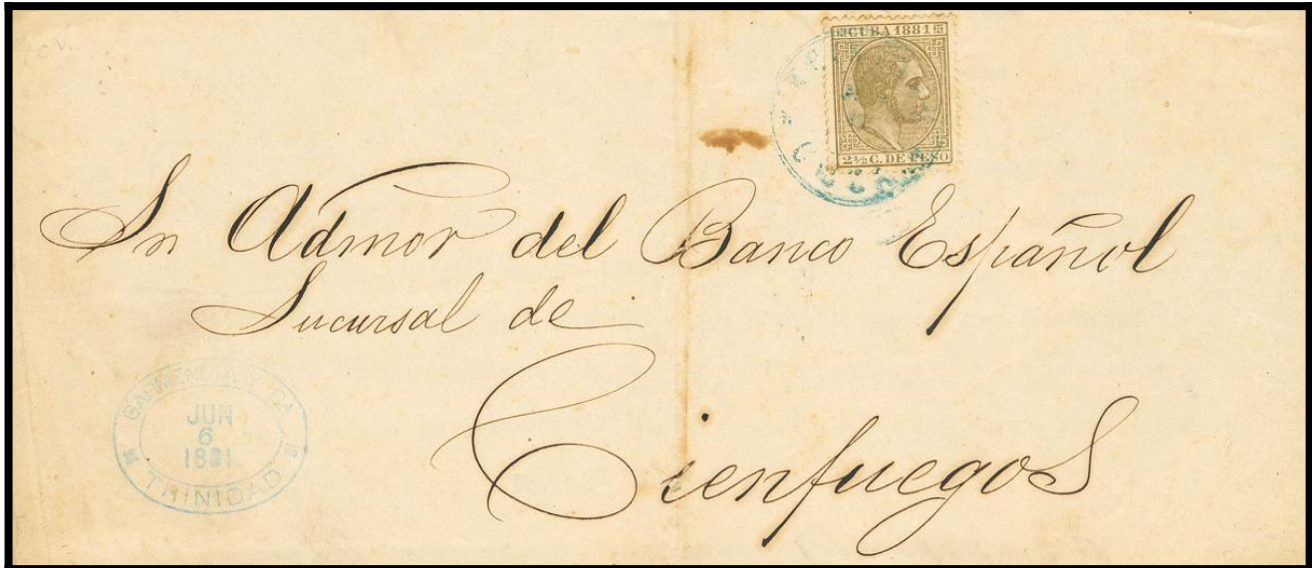 C.V.
CUBA 1881
2½ C. DE PESO
Sr Admor del Banco Español
Sucursal de
Cienfuegos
Y CA
JUN
6
1881
TRINIDAD